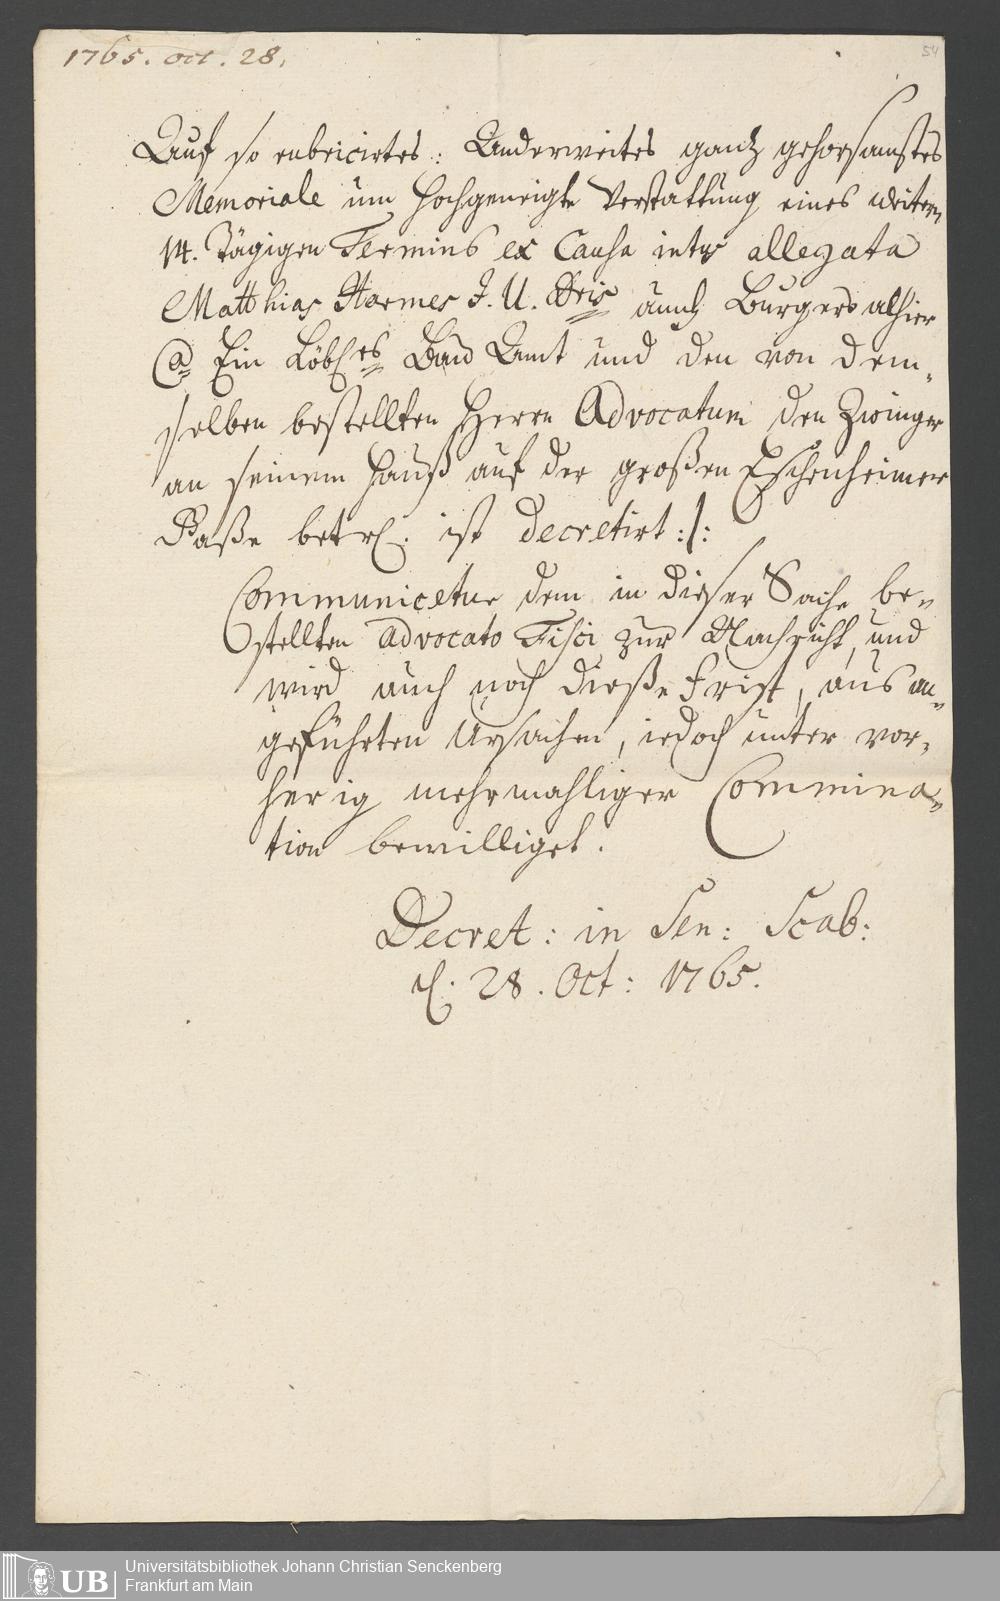 1765. Oct. 28.
54
Auf so rubricirtes: Anderweites gantz gehorsamstes
Memoriale um hochgeneigte Verstattung eines weitern
14. Tägigen Termins ex Causa intus allegata
Matthias Harmes J. U. Dris auch Burgers alhier
Ca Ein Löbl.es Bau Amt und den von dem-
selben bestellten Herrn Advocatum den Zwinger
an seinem Hauß auf der großen Eschenheimer
Gaße betrl. ist decretirt :/:
Communicetur dem in dieser Sache be-
stellten Advocato Fisci zur Nachricht, und
wird auch noch dieße Frist, aus an-
geführten Ursachen, iedoch unter vor-
herig mehrmahliger Commina-
tion bewilliget.
Decret: in Sen: Scab:
d. 28. Oct: 1765.
UB
Universitätsbibliothek Johann Christian Senckenberg
Frankfurt am Main